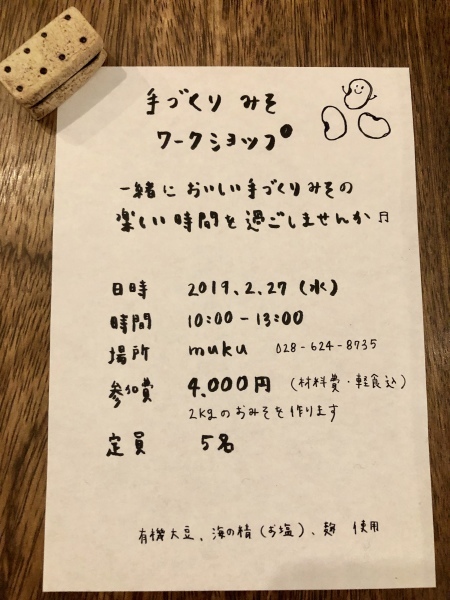 手づくり みそ
ワークショップ
一緒に おいしい手づくりみその
楽しい時間を過ごしませんか♬
日時 2019.2.27(水)
時間 10:00-13:00
場所 muku 028-624-8735
参加費 4,000円 (材料費・軽食込)
2kgのおみそを作ります
定員 5名
有機大豆、海の精(お塩)、麹 使用